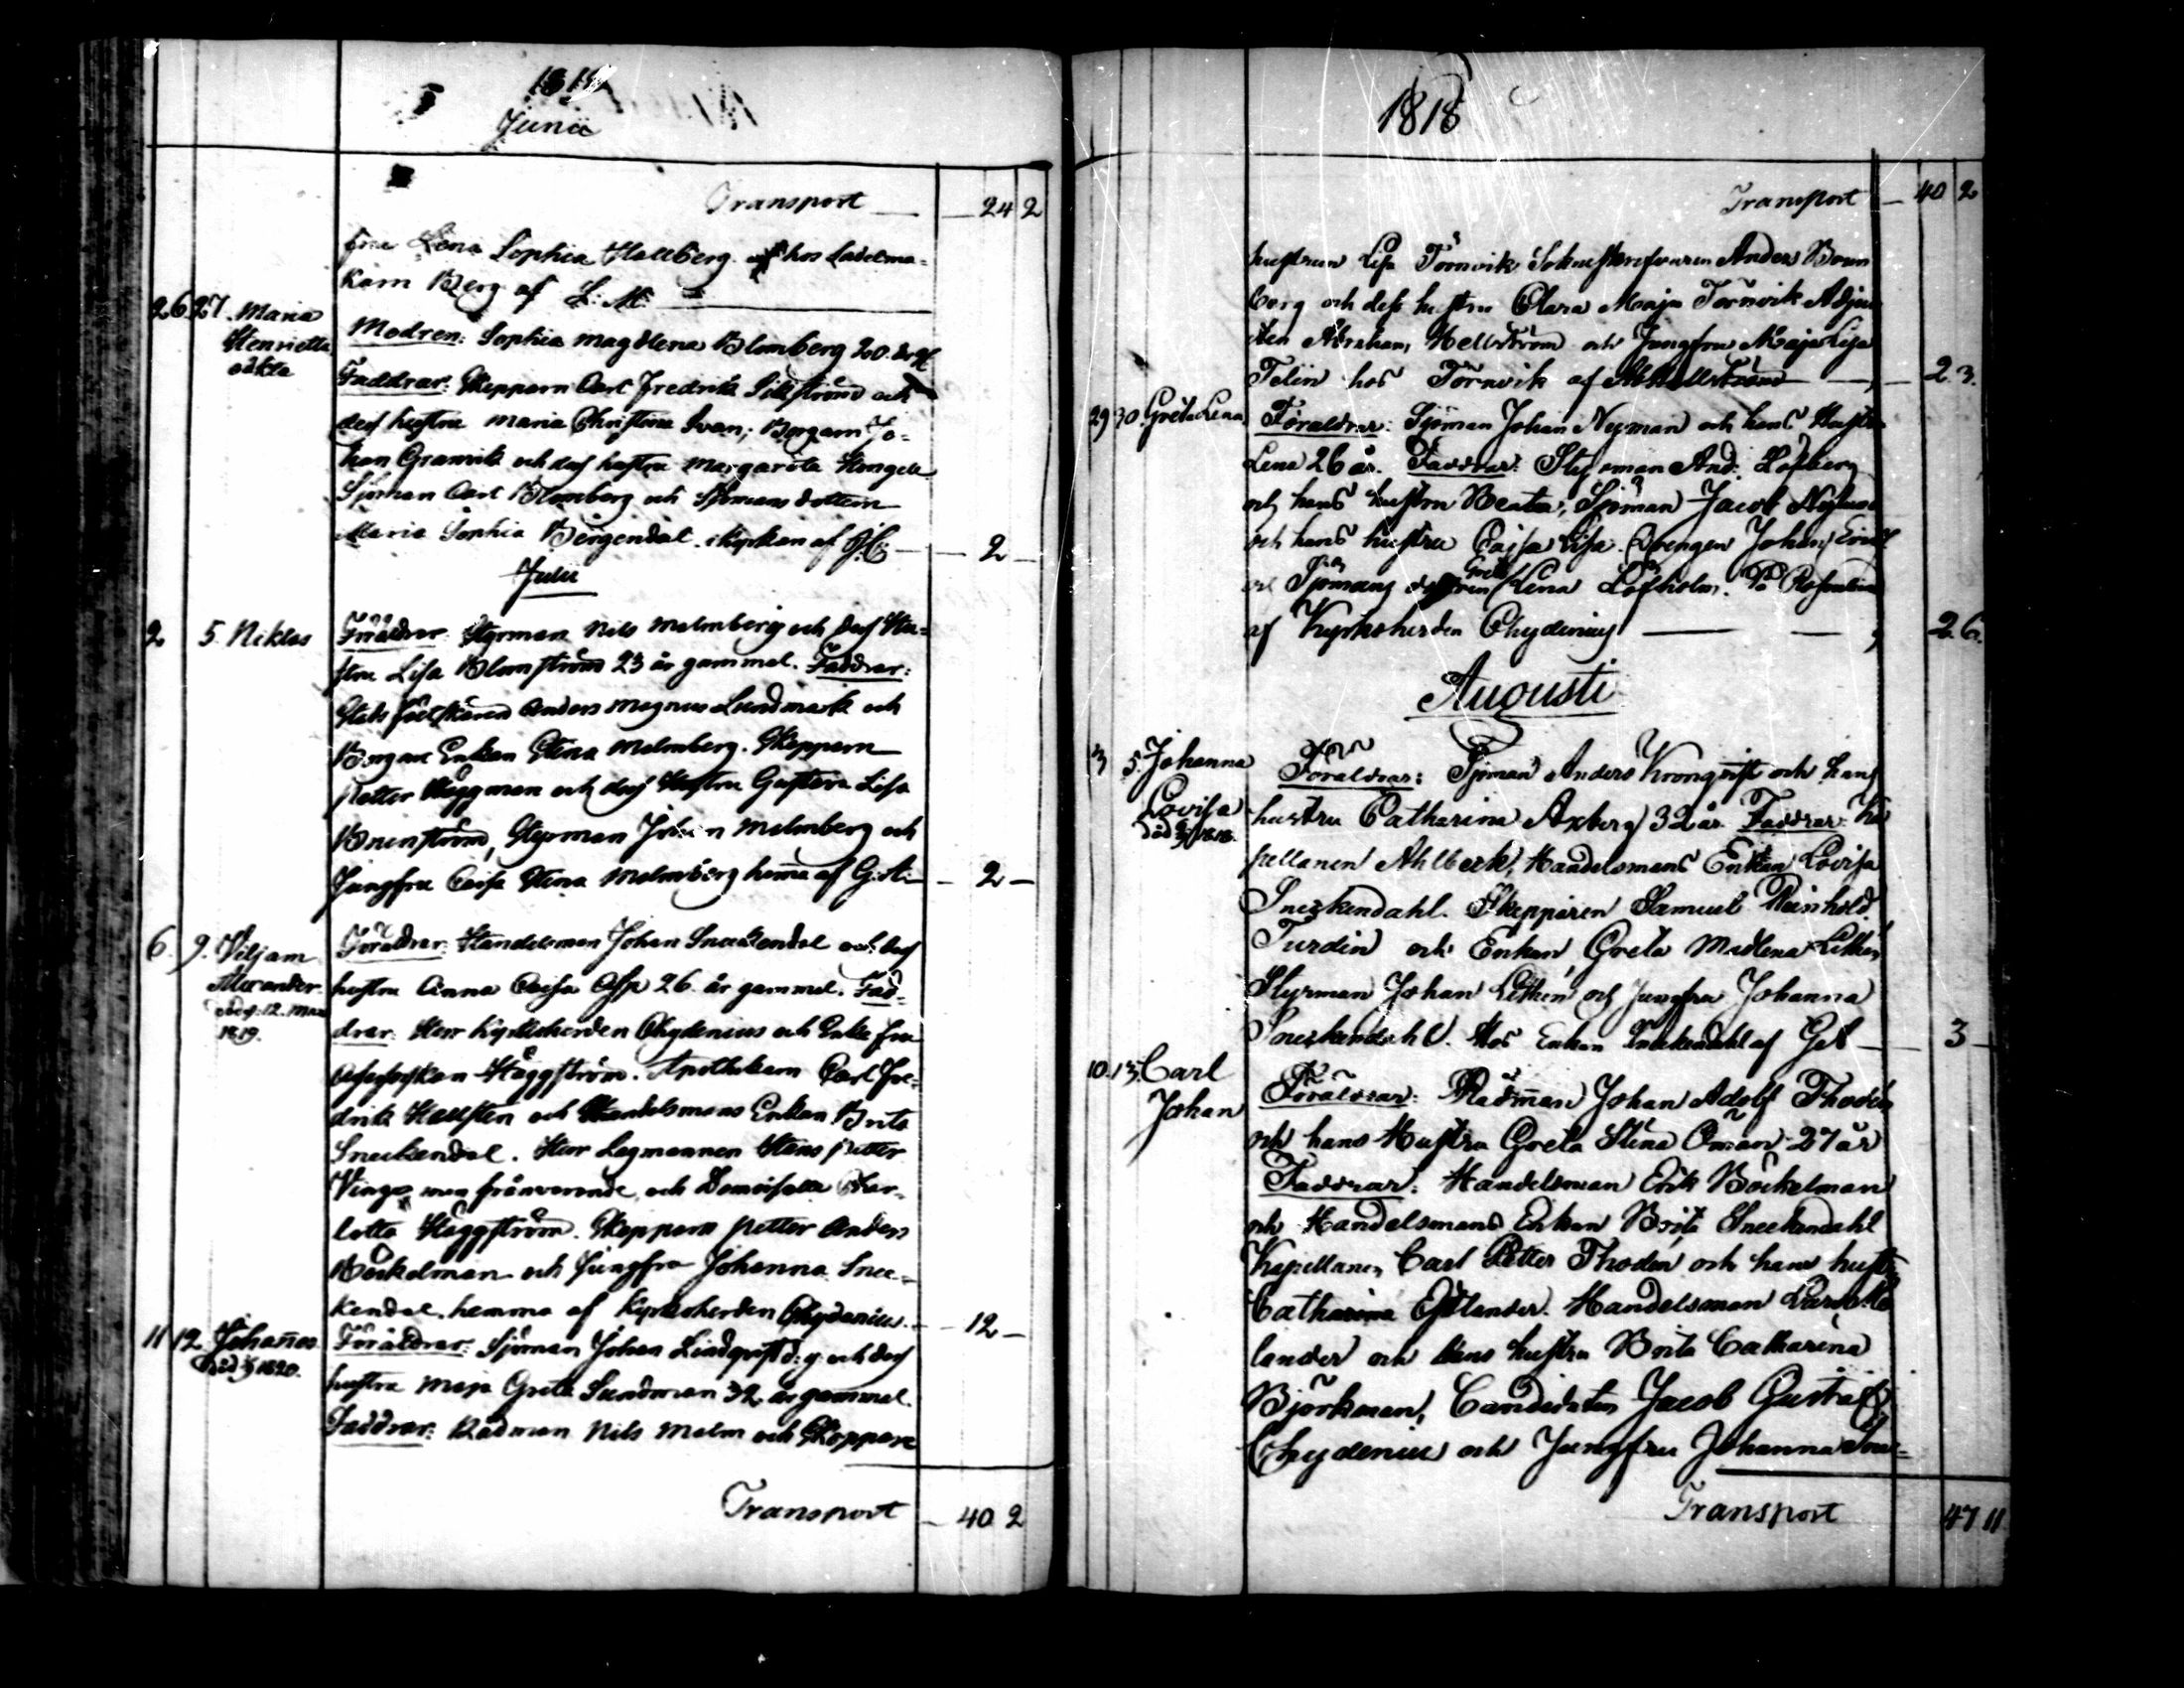 1818
Junii
Transport — — 24 2
fru Lena Sophia Hallberg hos Sadelma-
karn Berg af L: M:
26. 27. Maria
Henrietta
oäkta
Modren: Sophia Magdlena Blomberg 20 år gl
Faddrar: Skepparn Carl Fredrik Sikström och
dess hustru Maria Christina Svan; Borgarn Jo-
han Granvik och dess hustru Margareta
Sjöman Carl Blomberg och Sjömans dottern
Maria Sophia Bergendal. i Kyrkan af — — 2 —
Julii
2 5. Niklas
Föräldrar: Styrman Nils Malmberg och dess Hu-
stru Lisa Blomström 23 år gammal. Faddrar:
Stads fältskären Anders Magnus Lundmark och
Borgare Enkan Stina Malmberg. Skepparn
Petter Häggman och dess Hustru Gustava Lisa
Brunström, Styrman Johan Malmberg och
Jungfru Caisa Stina Malmberg hema af G. A. — 2 —
6. 9. Viljam
Alexander
död: 12. Mars
1819.
Föräldrar: Handelsman Johan Sneckendal och dess
hustru Anna Caisa Asp 26 år gammal. Fad-
drar: Herr Kyrkoherden Chydenius och Enke fru
Häggström. Apothekarn Carl Fre-
drik Hallsten och Handelsmans Enkan Brita
Sneckendal. Herr Lagmannen Hans Petter
Vinge, men frånvarende, och Demoiselle Char-
lotta Häggström. Skepparn Petter Anders
Böckelman och Jungfru Johanna Snec-
kendal. hemma af Kyrkoherden Chydenius. — 12 —
11 12 Johannes
död 1820.
Föräldrar: Sjöman Johan Lindqvist d: y: och dess
hustru Maja Greta Sundman 32 år gammal.
Faddrar: Rådman Nils Malm och Skeppare
Transport — 40 2
1818
Transport — 40 2
hustrun Lisa Törnvik Anders Brun
berg och dess hustru Clara Maja Törnvik Adjun
cten Abraham Hellström och Jungfru Maja Lisa
Telin hos Törnvik af Ab Hellström — — 2. 3.
29 30. Greta Lena
Föräldrar: Sjöman Johan Nyman och hans Hustru
Lena 26 år. Faddrar: Styrman And: Löfberg
och hans hustru Beata; Sjöman Jacob
och hans hustru Cajsa Lisa. Drengen Johan
och Sjömans dottren Greta Lena Löfholm. På
af Kyrkoherden Chydenius — — 2. 6.
Augusti
3 5. Johanna
Lovisa
död 1818.
Föräldrar: Sjöman Anders Kronqvist och hans
hustru Catharina Axberg 32 år. Faddrar: Ka
pellanen Ahlbeck, Handelsmans Enkan Lovisa
Sneckendahl. Skepparen Samuel Reinhold
Turdin och Enkan Greta Madlena Lithen
Styrman Johan Lithén och Jungfru Johanna
Sneckendahl. Hos Enkan Sneckendahl af — 3 —
10. 13. Carl
Johan
Föräldrar: Rådman Johan Adolf Thodén
och hans Hustru Greta Stina Öman 27 år
Faddrar: Handelsman Erik Böckelman
och Handelsmans Enkan Brita Sneckendahl
Kapellanen Carl Petter Thodén och hans hustru
Catharina Estlander. Handelsman
lander och hans hustru Brita Catharina
Björkman, Candidaten Jacob Gustaf
Chydenius och Jungfru Johanna Snec-
Transport 47 11